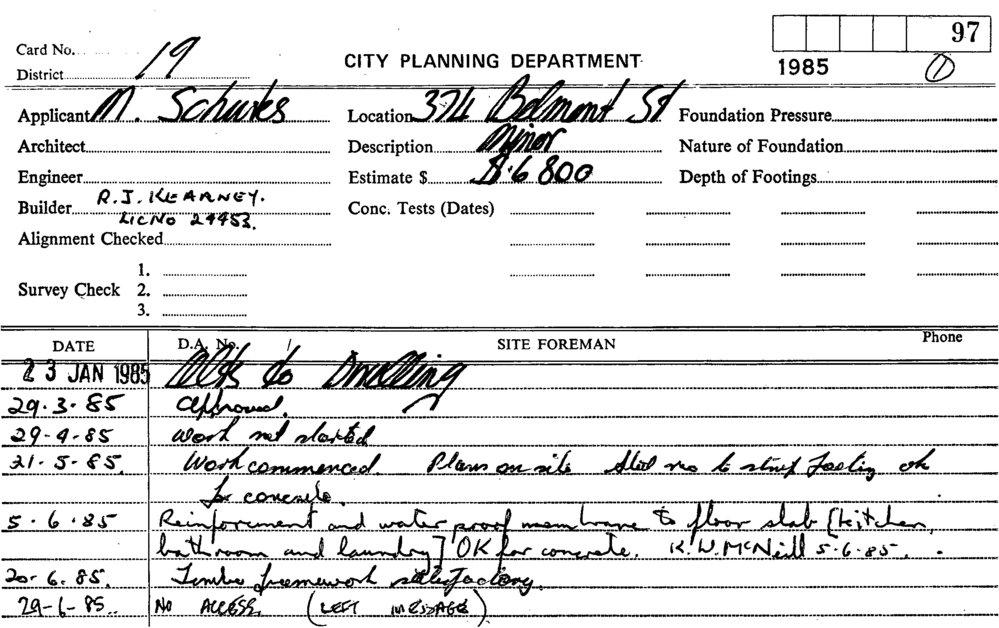 97
Card No.
1985
1
District 19
CITY PLANNING DEPARTMENT
Applicant M. Schurks Location 374 Belmont St Foundation Pressure
Architect Description Minor Nature of Foundation
Engineer Estimate $ $6800 Depth of Footings
Builder R.J. KEARNEY. Conc. Tests (Dates)
LIC No 24453.
Alignment Checked
1.
Survey Check 2.
3.
DATE D.A. No. SITE FOREMAN Phone
23 JAN 1985 Alts to Dwelling
29.3.85 Approved.
29-4-85 Work not started
21-5-85. Work commenced. Plans on site Steel to strip footing ok
for concrete.
5.6.85 Reinforcement and water proof membrane to floor slab [kitchen,
bathroom and laundry] OK for concrete. K.W. McNeill 5-6-85.
20-6.85. Timber framework satisfactory.
29-6-85.. NO ACCESS. (LEFT MESSAGE)